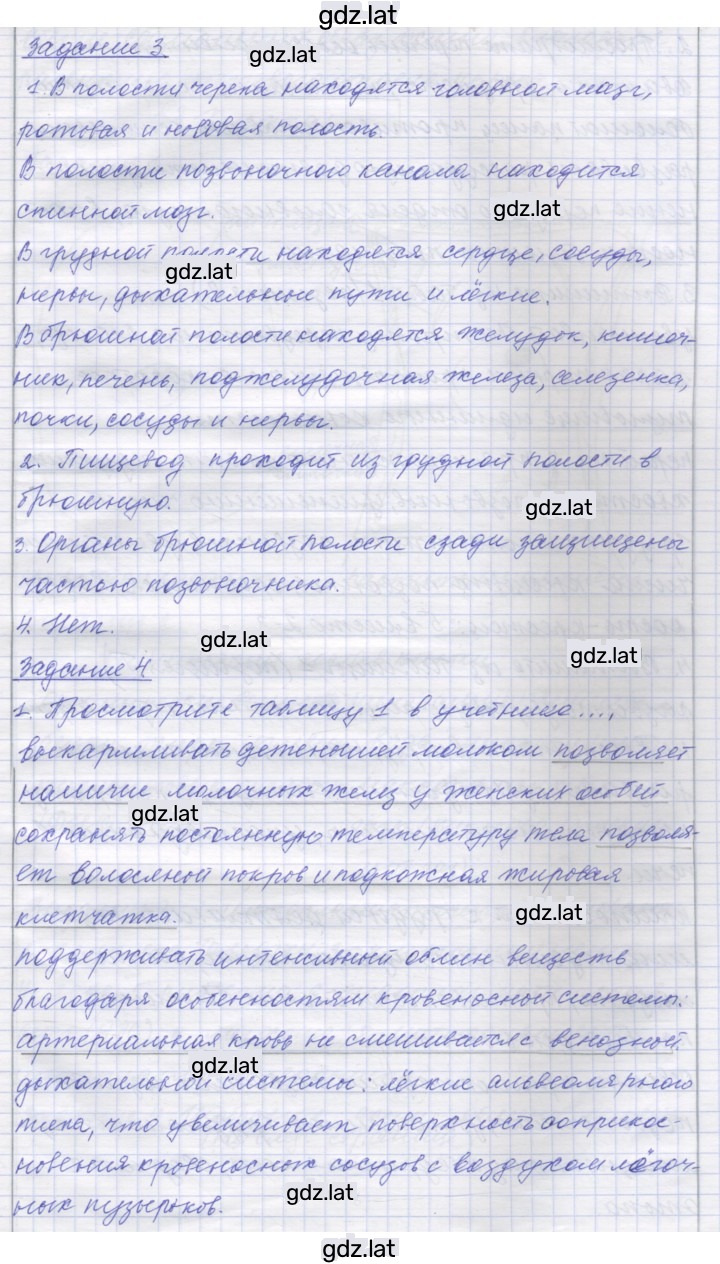 gdz.lat
Задание 3
gdz.lat
1. В полости черепа находятся головной мозг,
ротовая и носовая полость.
В полости позвоночного канала находится
спинной мозг.
gdz.lat
В грудной полости находятся сердце, сосуды,
gdz.lat
нервы, дыхательные пути и лёгкие.
В брюшной полости находятся желудок, кишеч-
ник, печень, поджелудочная железа, селезенка,
почки, сосуды и нервы.
2. Пищевод проходит из грудной полости в
брюшную.
gdz.lat
3. Органы брюшной полости сзади защищены
частью позвоночника.
4. Нет.
gdz.lat
gdz.lat
Задание 4
1. Просмотрите таблицу 1 в учебнике...,
выскармливать детенышей молоком позволяет
наличие молочных желез у женских особей
gdz.lat
сохранять постоянную температуру тела позволя-
ет волосяной покров и подкожная жировая
клетчатка.
gdz.lat
поддерживать интенсивный обмен веществ
благодаря особенностям кровеносной системы:
артериальная кровь не смешивается с венозной.
gdz.lat
дыхательной системы: лёгкие альвеолярного
типа, что увеличивает поверхность соприкос-
новения кровеносных сосудов с воздухом лёгоч-
ных пузырьков.
gdz.lat
gdz.lat